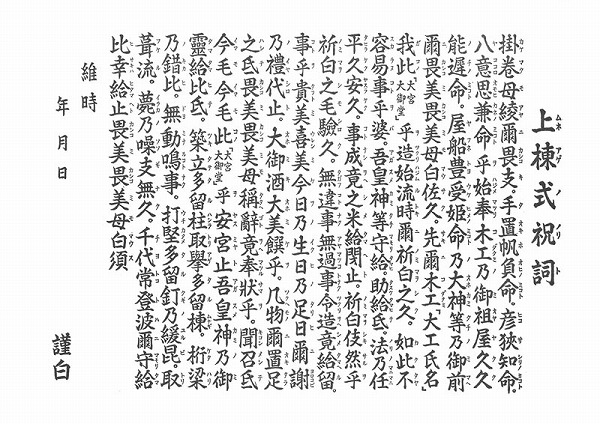 上棟式祝詞
掛卷母綾爾畏支。手置帆負命。彦狹知命。
八意思兼命乎始奉木工乃御祖屋久久
能遲命。屋船豊受姫命乃大神等乃御前
爾畏美畏美母白佐久。先爾木工「大工氏名」
我此「大宮大御堂」乎造始流時爾祈白之久。如此不
容易事乎婆。吾皇神等守給。助給氐。法乃任
平久安久。事成竟之米給閉止。祈白伎然乎
祈白之毛驗久。無違事無過事令造竟給留。
事乎貴美喜美今日乃生日乃足日爾謝
乃禮代止。大御酒大美饌乎。几物爾置足
之氐畏美畏美母稱辭竟奉狀乎。聞召氐
今毛今毛此「大宮大御堂」乎安宮止吾皇神乃御
靈給比氐。築立多留柱取擧多留棟。桁梁
乃錯比。無動鳴事。打堅多留釘乃緩昆。取
葺流。甍乃噪支無久。千代常登波爾守給
比幸給止畏美畏美母白須
維時
年月日
謹白